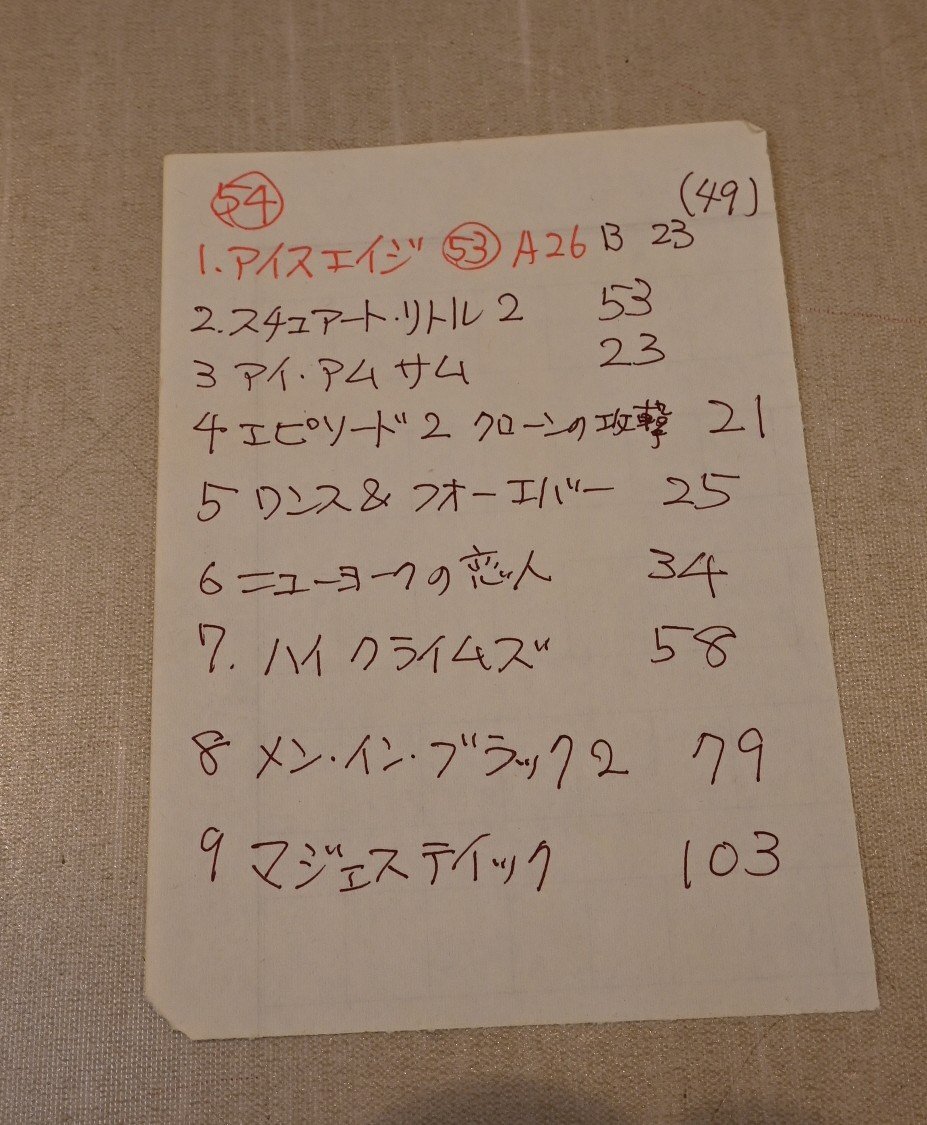 54 (49)
1. アイスエイジ 53 A26 B 23
2. スチュアート・リトル 2 53
3 アイ・アム サム 23
4 エピソード 2 クローンの攻撃 21
5 ワンス & フォーエバー 25
6 ニューヨークの恋人 34
7. ハイ クライムズ 58
8 メン・イン・ブラック2 79
9 マジェスティック 103